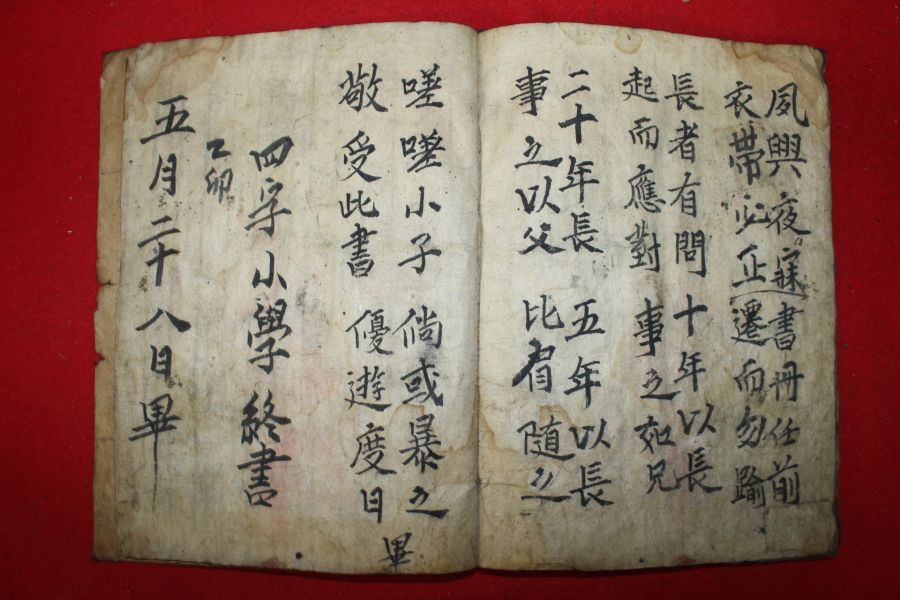 夙興夜寐 書冊任前
衣帶必正 遷而勿踰
長者有問 十年以長
起而應對 事之如兄
二十年長 五年以長
事之以父 比肩隨之
嗟嗟小子 倘或暴之
敬受此書 優遊度日
畢
四字小學終書
乙卯
五月二十八日畢